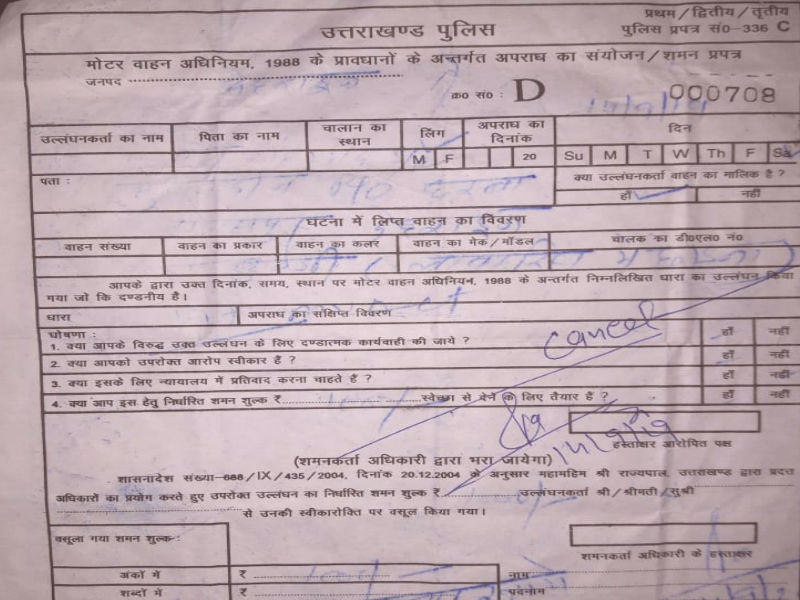 प्रथम/द्वितीय/तृतीय
उत्तराखण्ड पुलिस
पुलिस प्रपत्र सं0-336 C
मोटर वाहन अधिनियम, 1988 के प्रावधानों के अन्तर्गत अपराध का संयोजन/शमन प्रपत्र
जनपद
क्र0 सं0 : D 000708
उल्लंघनकर्ता का नाम पिता का नाम चालान का स्थान लिंग अपराध का दिनांक दिन
M F 20 Su M T W Th F Sa
पता :
क्या उल्लंघनकर्ता वाहन का मालिक है ?
हाँ नहीं
घटना में लिप्त वाहन का विवरण
वाहन संख्या वाहन का प्रकार वाहन का कलर वाहन का मेक/मॉडल चालक का डी0एल0 नं0
आपके द्वारा उक्त दिनांक, समय, स्थान पर मोटर वाहन अधिनियन, 1988 के अन्तर्गत निम्नलिखित धारा का उल्लंघन किया
गया जो कि दण्डनीय है।
धारा अपराध का संक्षिप्त विवरण
घोषणा :
1. क्या आपके विरुद्ध उक्त उल्लंघन के लिए दण्डात्मक कार्यवाही की जाये ? हाँ नहीं
cancel
2. क्या आपको उपरोक्त आरोप स्वीकार हैं ? हाँ नहीं
3. क्या इसके लिए न्यायालय में प्रतिवाद करना चाहते हैं ? हाँ नहीं
4. क्या आप इस हेतु निर्धारित शमन शुल्क ₹ स्वेच्छा से देने के लिए तैयार हैं ? हाँ नहीं
हस्ताक्षर आरोपित पक्ष
(शमनकर्ता अधिकारी द्वारा भरा जायेगा)
शासनादेश संख्या-688/IX/435/2004, दिनांक 20.12.2004 के अनुसार महामहिम श्री राज्यपाल, उत्तराखण्ड द्वारा प्रदत्त
अधिकारों का प्रयोग करते हुए उपरोक्त उल्लंघन का निर्धारित शमन शुल्क ₹ उल्लंघनकर्ता श्री/श्रीमती/सुश्री
से उनकी स्वीकारोक्ति पर वसूल किया गया।
वसूला गया शमन शुल्क :
शमनकर्ता अधिकारी के हस्ताक्षर
अंकों में ₹ नाम
शब्दों में ₹ पदनाम